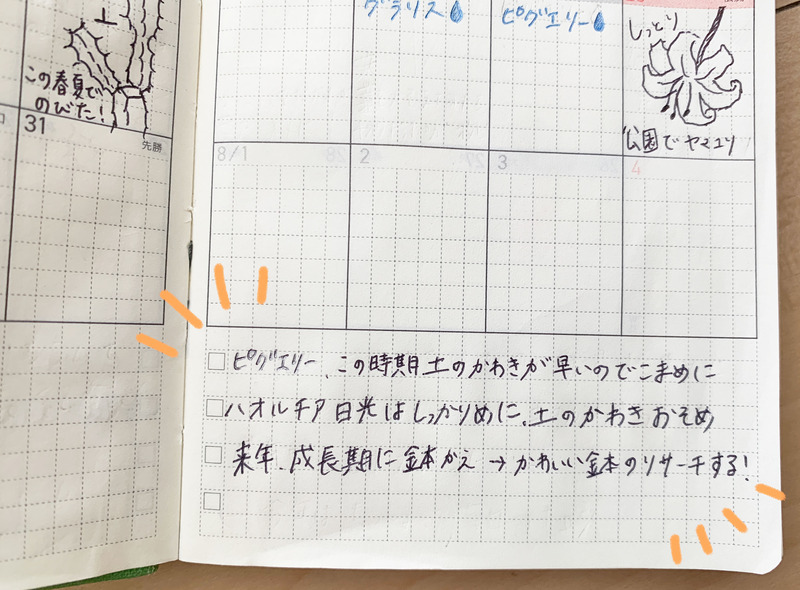 グラリス
ピグエリー
しっとり
公園でヤマユリ
この春夏で
のびた!
31
先勝
8/1
2
3
4
ピグエリー、この時期土のかわきが早いのでこまめに
ハオルチア日光はしっかりめに、土のかわきおそめ
来年、成長期に鉢かえ→かわいい鉢のリサーチする!